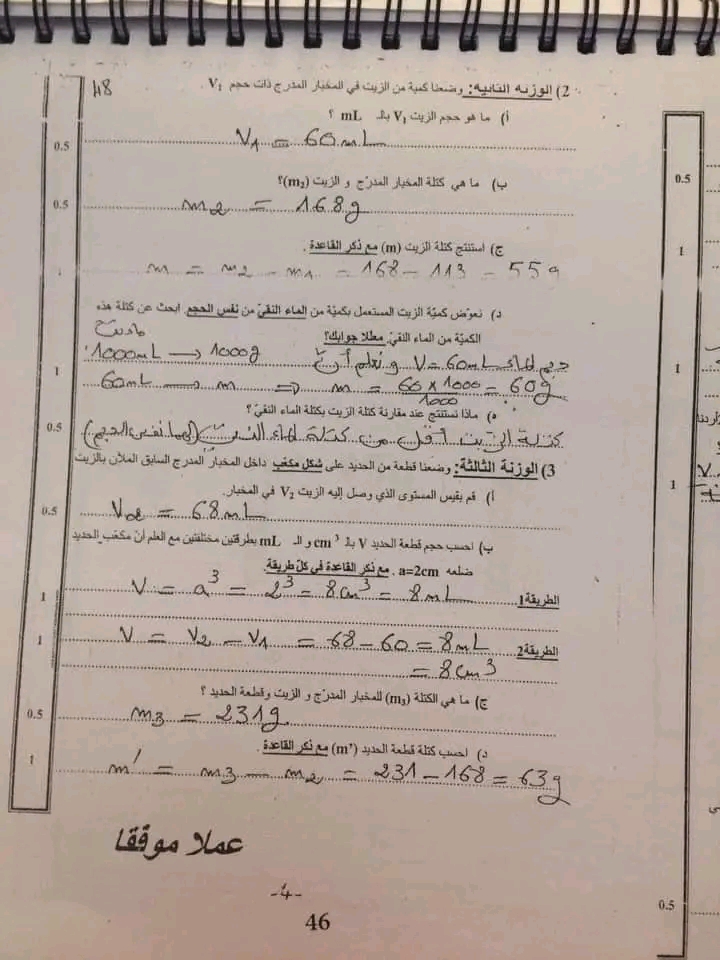 48
2) الوزنة الثانية: وضعنا كمية من الزيت في المخبار المدرج ذات حجم V₁.
أ) ما هو حجم الزيت V₁ بالـ mL ؟
0.5
V₁ = 60mL
ب) ما هي كتلة المخبار المدرّج و الزيت (m₂)؟
0.5
m₂ = 168g
ج) استنتج كتلة الزيت (m) مع ذكر القاعدة .
1
m = m₂ - m₁ = 168 - 113 = 55g
د) نعوّض كميّة الزيت المستعمل بكميّة من الماء النقيّ من نفس الحجم. ابحث عن كتلة هذه
الكميّة من الماء النقيّ. معللا جوابك؟
حجم الماء V = 60mL و نعلم أنّ
1000mL → 1000g
1
60mL → m ⇒ m = 60 × 1000 / 1000 = 60g
ه) ماذا تستنتج عند مقارنة كتلة الزيت بكتلة الماء النقيّ؟
0.5
كتلة الزيت أقل من كتلة الماء النقيّ (لهما نفس الحجم)
3) الوزنة الثالثة: وضعنا قطعة من الحديد على شكل مكعّب داخل المخبار المدرج السابق الملآن بالزيت
أ) قم بقيس المستوى الذي وصل إليه الزيت V₂ في المخبار.
0.5
V₂ = 68mL
ب) احسب حجم قطعة الحديد V بالـ cm³ و الـ mL بطرقتين مختلفتين مع العلم أنّ مكعّب الحديد
ضلعه a=2cm . مع ذكر القاعدة في كلّ طريقة.
1
الطريقة1 V = a³ = 2³ = 8cm³ = 8mL
1
الطريقة2 V = V₂ - V₁ = 68 - 60 = 8mL
= 8cm³
ج) ما هي الكتلة (m₃) للمخبار المدرّج و الزيت وقطعة الحديد ؟
0.5
m₃ = 231g
د) احسب كتلة قطعة الحديد (m') مع ذكر القاعدة.
1
m' = m₃ - m₂ = 231 - 168 = 63g
عملا موفقا
-4-
46
0.5
1
1
0.5